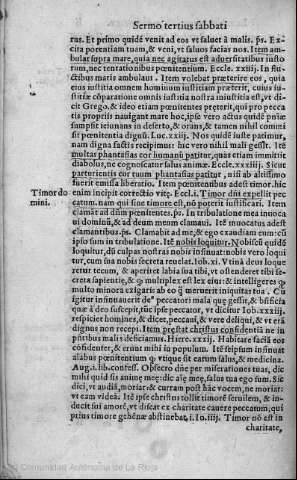 Sermo tertius sabbati
rus. Et primo quidē venit ad eos vt saluet à malis. ps. Ex
cita potentiam tuam, & veni, vt saluos facias nos. Item am
bulat supra mare, quia nec agitatus est aduersitatibus iusto
rum, nec tentationibus pœnitentium. Eccle. xxiiij. In flu
ctibus maris ambulaui. Item volebat præterire eos, quia
eius iustitia omnem hominum iustitiam præterit, cuius iu-
stitiæ cōparatione omnis iustitia nostra iniustitia est, vt di-
cit Grego. & ideo etiam pœnitentes præterit, qui pro pecca
tis proprijs nauigant mare hoc, ipse vero actus quidē pœniæ
sumpsit ieiunans in deserto, & orans, & tamen nihil commi
sit pœnitentia dignū. Luc. xxiij. Nos quidē iuste patimur,
nam digna factis recipimus: hic vero nihil mali gessit. Itē
multas phantasias cor humanū patitur, quas etiam immittit
diabolus, ne cognoscatur salus animæ. Eccle. xxxiiij. Sicut
parturientis cor tuum phantasias patitur, nisi ab altissimo
fuerit emissa liberatio. Item pœnitentibus adest timor. hic
Timor do
mini.
enim incipit correctiō viæ. Eccle. i. Timor dn̄i expellit pec
catum. nam qui sine timore est, nō poterit iustificari. Item
clamāt ad dn̄m pœnitentes. ps. In tribulatione mea inuoca
ui dominū, & ad deum meum clamaui. Itē inuocatus adest
clamantibus. ps. Clamabit ad me, & ego exaudiam eum: cū
ipso sum in tribulatione. Itē nobis loquitur. Nobiscū quidē
loquitur, dū culpas nostras nobis insinuat: nobis vero loqui
tur, cum sua nobis secreta reuelat. Iob. xi. Vtinā deus loque
retur tecum, & aperiret labia sua tibi, vt ostenderet tibi se-
creta sapientiæ, & ꝙ multiplex est lex eius: & intelligeres ꝙ
multo minora exigaris ab eo ꝗ̄ meruerit iniquitas tua. Cū
igitur insinuauerit deꝰ peccatori mala quæ gessit, & bn̄ficia
quæ à deo suscepit, sic ipse peccator, vt dicitur Iob. xxxiij.
respiciet homines, & dicet, peccaui, & vere deliqui, & vt erā
dignus non recepi. Item præstat christus confidentiā ne in
pristibus malis deficiamus. Hiere. xxxij. Habitare faciā eos
confidenter, & erunt mihi in populum. Itē seipsum insinuat
alabus pœnitentium ꝙ vtique sit earum salus, & medicina.
Aug. i. lib. confess. Obsecro dn̄e per miserationes tuas, dic
mihi quid sis animę meę: dic aīæ meę, salus tua ego sum. Sic
dici, vt audiā, moriar: & curram post hāc vocem, ne moriar:
vt eam videā. Itē ipse christus tollit timorē seruilem, & in-
decit sui amorē, vt discat ex charitate cauere peccatum, qui
prius timore gehēnæ abstinebat, i. Io. iiij. Timor nō est in
charitate,
Comunidad Autónoma de La Rioja